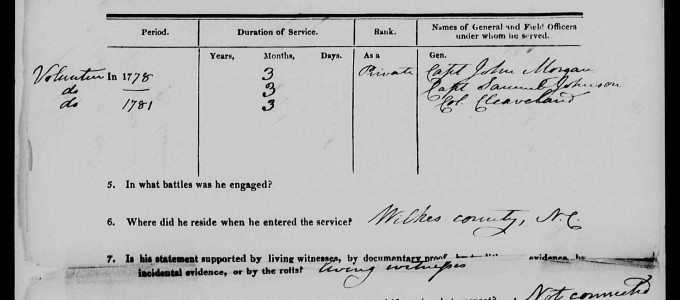 Period. Duration of Service. Rank. Names of General and Field Officers
under whom he served.
Years, Months, Days. As a Gen.
Volunteer In 1778 3 Private Capt John Morgan
do 3 Capt Samuel Johnson
do 1781 3 Col. Cleaveland
5. In what battles was he engaged?
6. Where did he reside when he entered the service? Wilkes county, N.C.
7. Is his statement supported by living witnesses, by documentary proof, evidence, by
incidental evidence, or by the rolls? living witnesses
Not connected